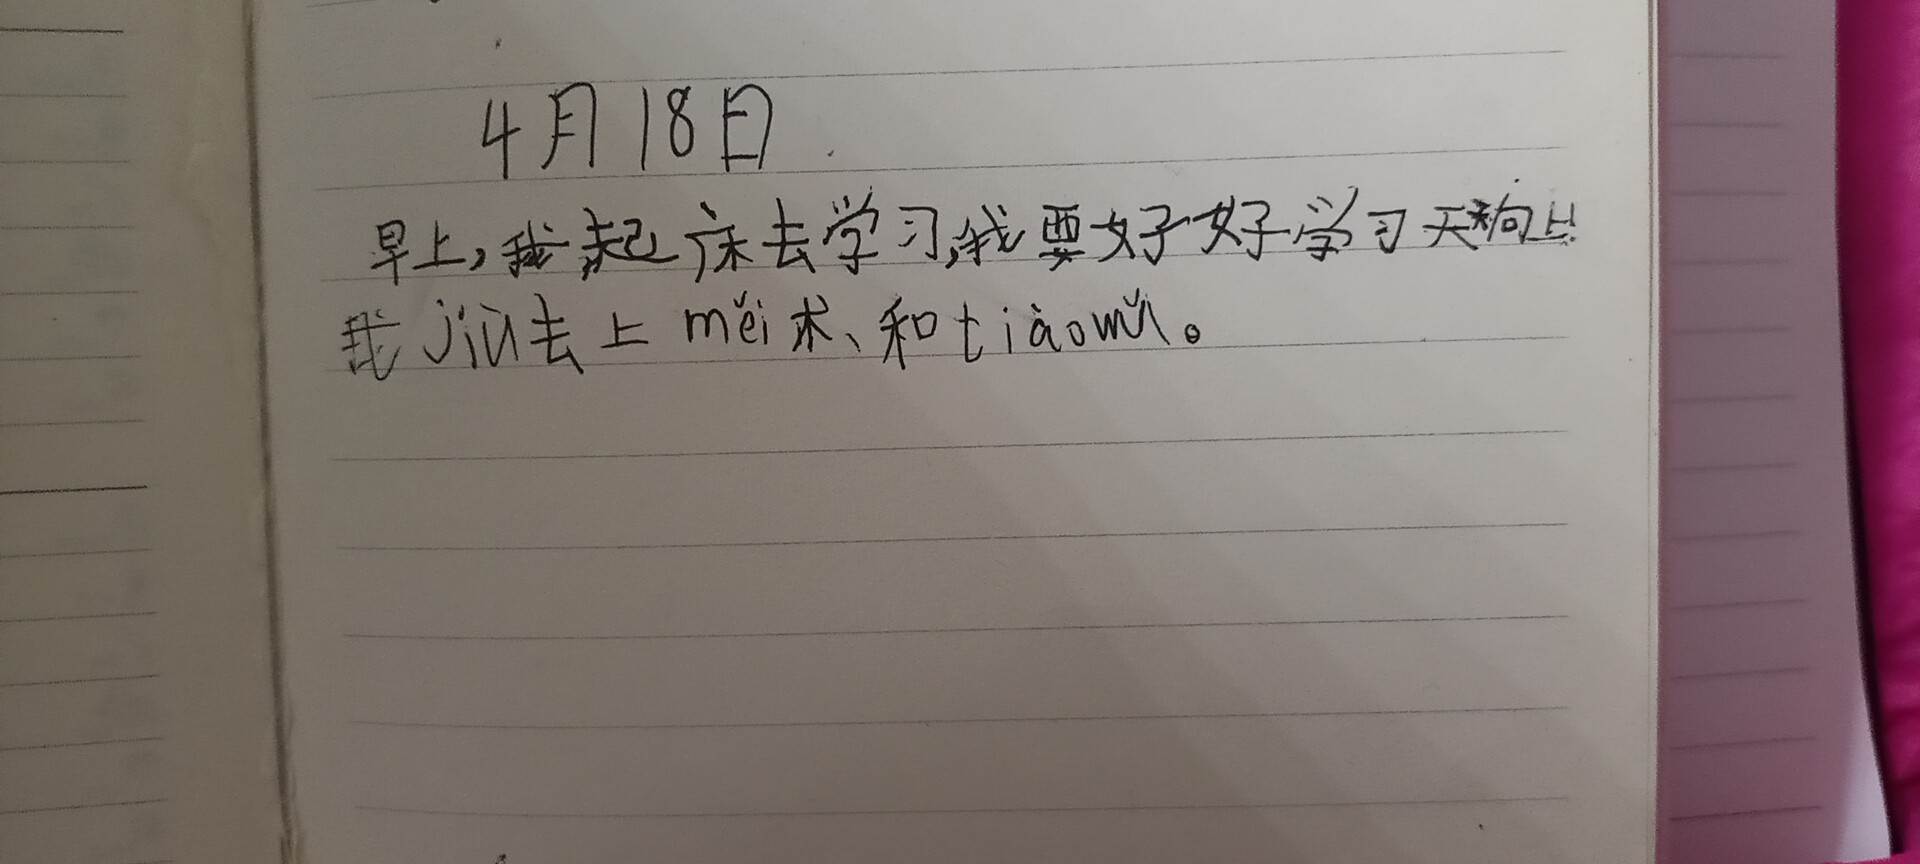 4月18日
早上，我起床去学习，我要好好学习天天向上！
我jiù去上měi术、和tiàowǔ。